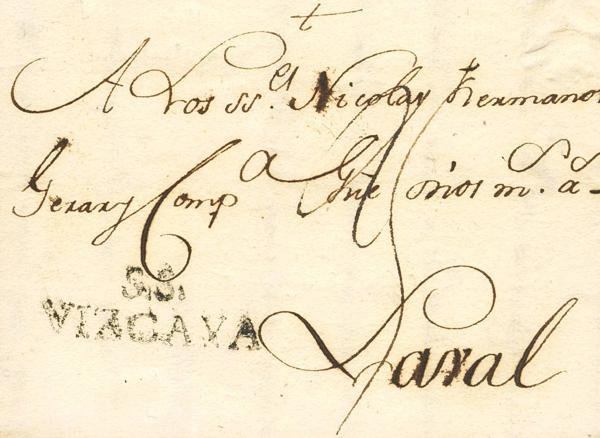 A Los ss.es Nicolas Hermanos
Gerar y Comp.a Que Dios m.s a.s
S.S.
VIZCAYA
Laval